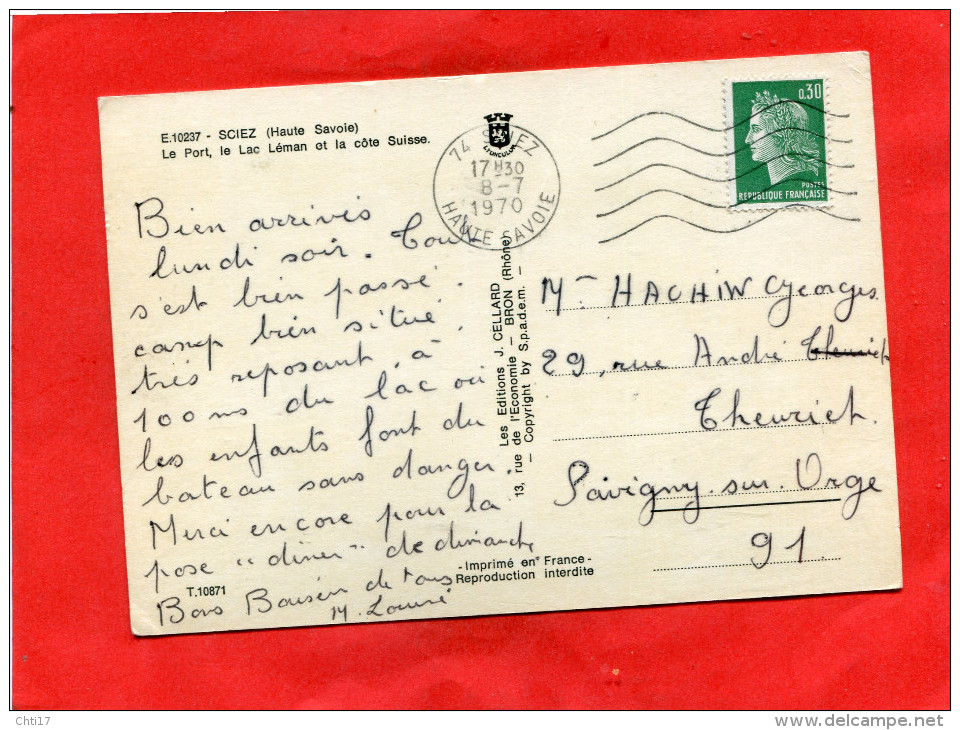 E.10237 - SCIEZ (Haute Savoie)
Le Port, le Lac Léman et la côte Suisse.
LYONCOLOR
74 SCIEZ
17H30
8-7
1970
HAUTE SAVOIE
0,30
POSTES
REPUBLIQUE FRANÇAISE
Bien arrivés
lundi soir. Tout
s'est bien passé.
camp bien situé,
très reposant, à
100 ms du lac où
les enfants font du
bateau sans danger.
Merci encore pour la
pose "dîner" de dimanche
Bons Baisers de tous
M. Louise
T.10871
Les Editions J. CELLARD
13, rue de l'Economie - BRON (Rhône)
- Copyright by S.p.a.d.e.m. -
- Imprimé en France -
Reproduction interdite
Mr HACHIN Georges
29, rue André
Theuriet
Savigny-sur-Orge
91
Chti17
www.delcampe.net